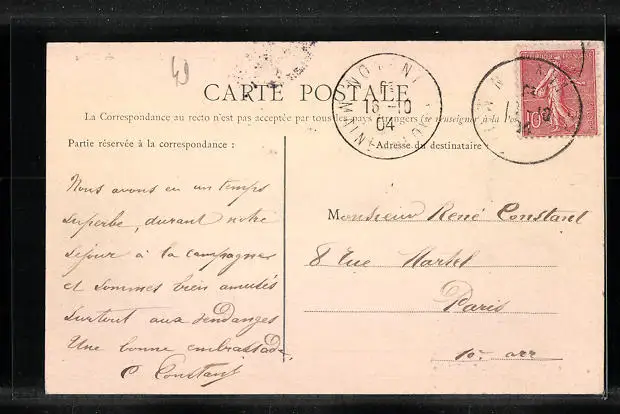 CARTE POSTALE
La Correspondance au recto n'est pas acceptée par tous les pays étrangers (se renseigner à la Pos
Partie réservée à la correspondance :
Adresse du destinataire :
16-10
04
10
Nous avons eu un temps
superbe, durant notre
séjour à la campagne
et sommes bien amusés
surtout aux vendanges
Une bonne embrassade
C Constant
Monsieur René Constant
8 rue Martel
Paris
10e arr